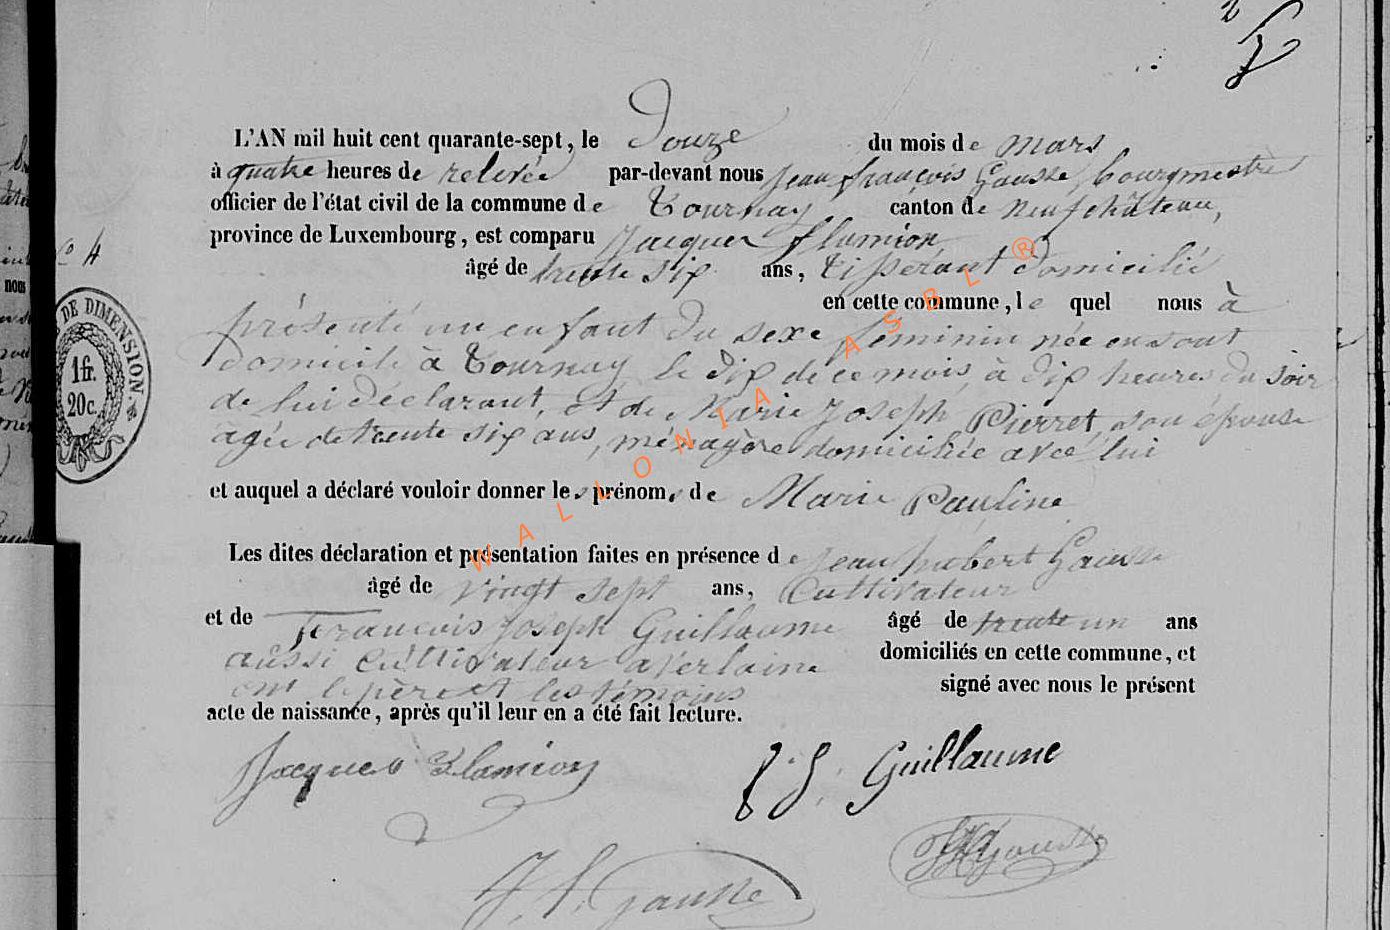 L'AN mil huit cent quarante-sept, le Douze du mois de mars
à quatre heures de relevée par-devant nous Jean françois Gausse, bourgmestre
officier de l'état civil de la commune de Tournay canton de neufchâteau,
province de Luxembourg, est comparu Jacques flamion
No 4
âgé de trente six ans, tisserant domicilié
en cette commune, le quel nous à
présenté un enfant du sexe feminin née en sont
domicile à Tournay le dix de ce mois, à dix heures du soir
de lui déclarant, et de Marie Joseph Pierret, son épouse
agée de trente six ans, ménagère domiciliée avec lui
et auquel a déclaré vouloir donner les prénoms de Marie Pauline
Les dites déclaration et présentation faites en présence de Jean hubert Gausse
âgé de vingt sept ans, Cultivateur
et de François Joseph Guillaume âgé de trente un ans
aussi cultivateur a Verlaine domiciliés en cette commune, et
ont le père et les témoins signé avec nous le présent
acte de naissance, après qu'il leur en a été fait lecture.
Jacques Flamion
f. J. Guillaume
JHGausse
J. f. Gausse
DE DIMENSION.
1 fr.
20 c.
nous
WALLONIA ASBL ®